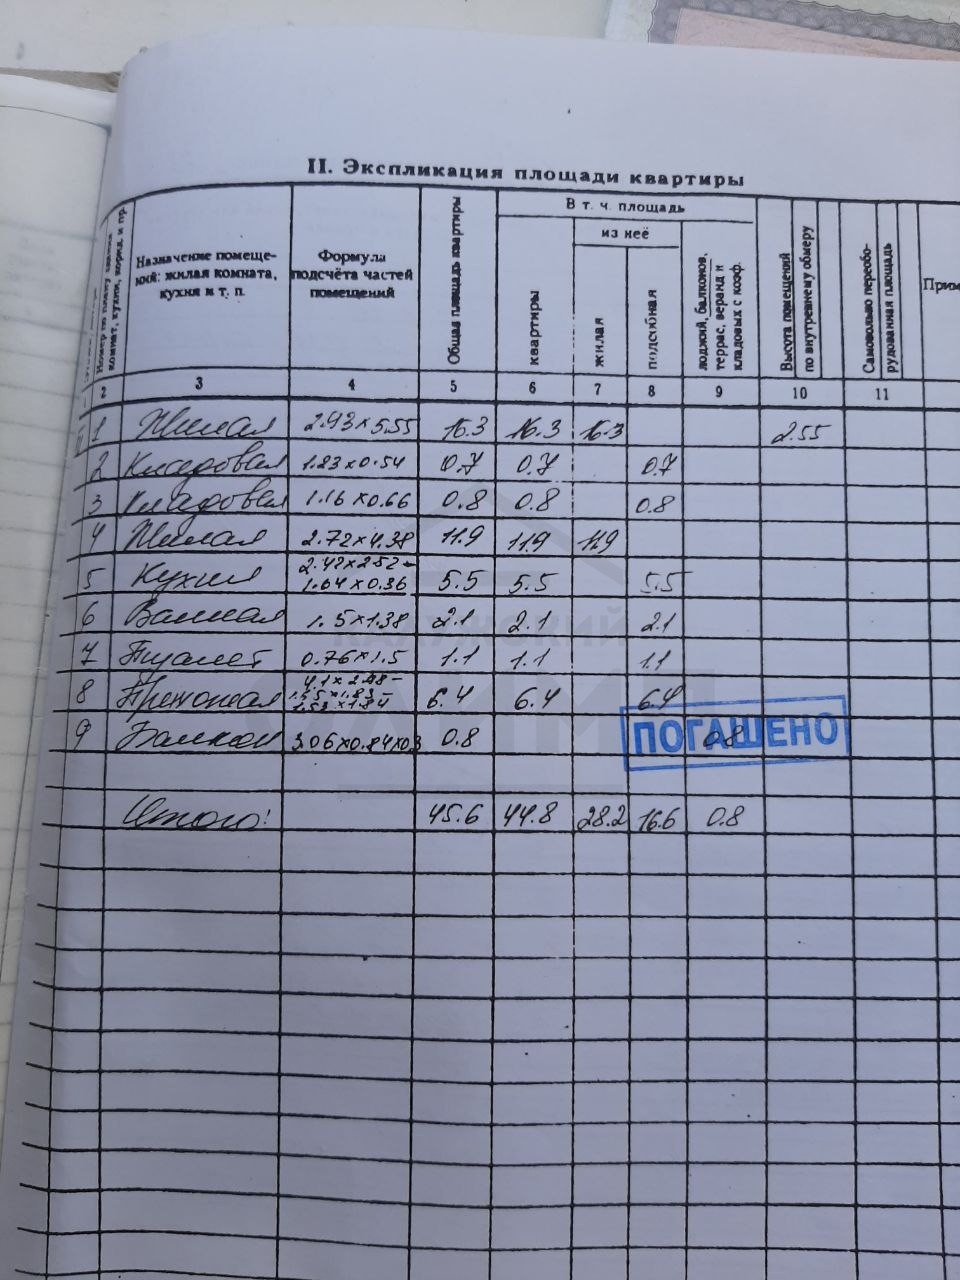 II. Экспликация площади квартиры
Номер по плану
комнат, кухни, корид. и пр.
Назначение помеще-
ний: жилая комната,
кухня и т. п.
Формула
подсчёта частей
помещений
Общая площадь квартиры
В т. ч. площадь
квартиры
из неё
жилая
подсобная
лоджий, балконов,
террас, веранд и
кладовых с коэф.
Высота помещений
по внутреннему обмеру
Самовольно переобо-
рудованная площадь
Прим
2 3 4 5 6 7 8 9 10 11
1 Жилая 2.93×5.55 16.3 16.3 16.3 2.55
2 Кладовая 1.23×0.54 0.7 0.7 0.7
3 Кладовая 1.16×0.66 0.8 0.8 0.8
4 Жилая 2.72×4.38 11.9 11.9 11.9
5 Кухня 2.42×2.52-
1.64×0.36 5.5 5.5 5.5
6 Ванная 1.5×1.38 2.1 2.1 2.1
7 Туалет 0.76×1.5 1.1 1.1 1.1
8 Прихожая 4.1×2.98-
1.53×1.84 6.4 6.4 6.4
9 Балкон 3.06×0.84×0.3 0.8 0.8
ПОГАШЕНО
Итого: 45.6 44.8 28.2 16.6 0.8
КАЛУЖСКИЙ